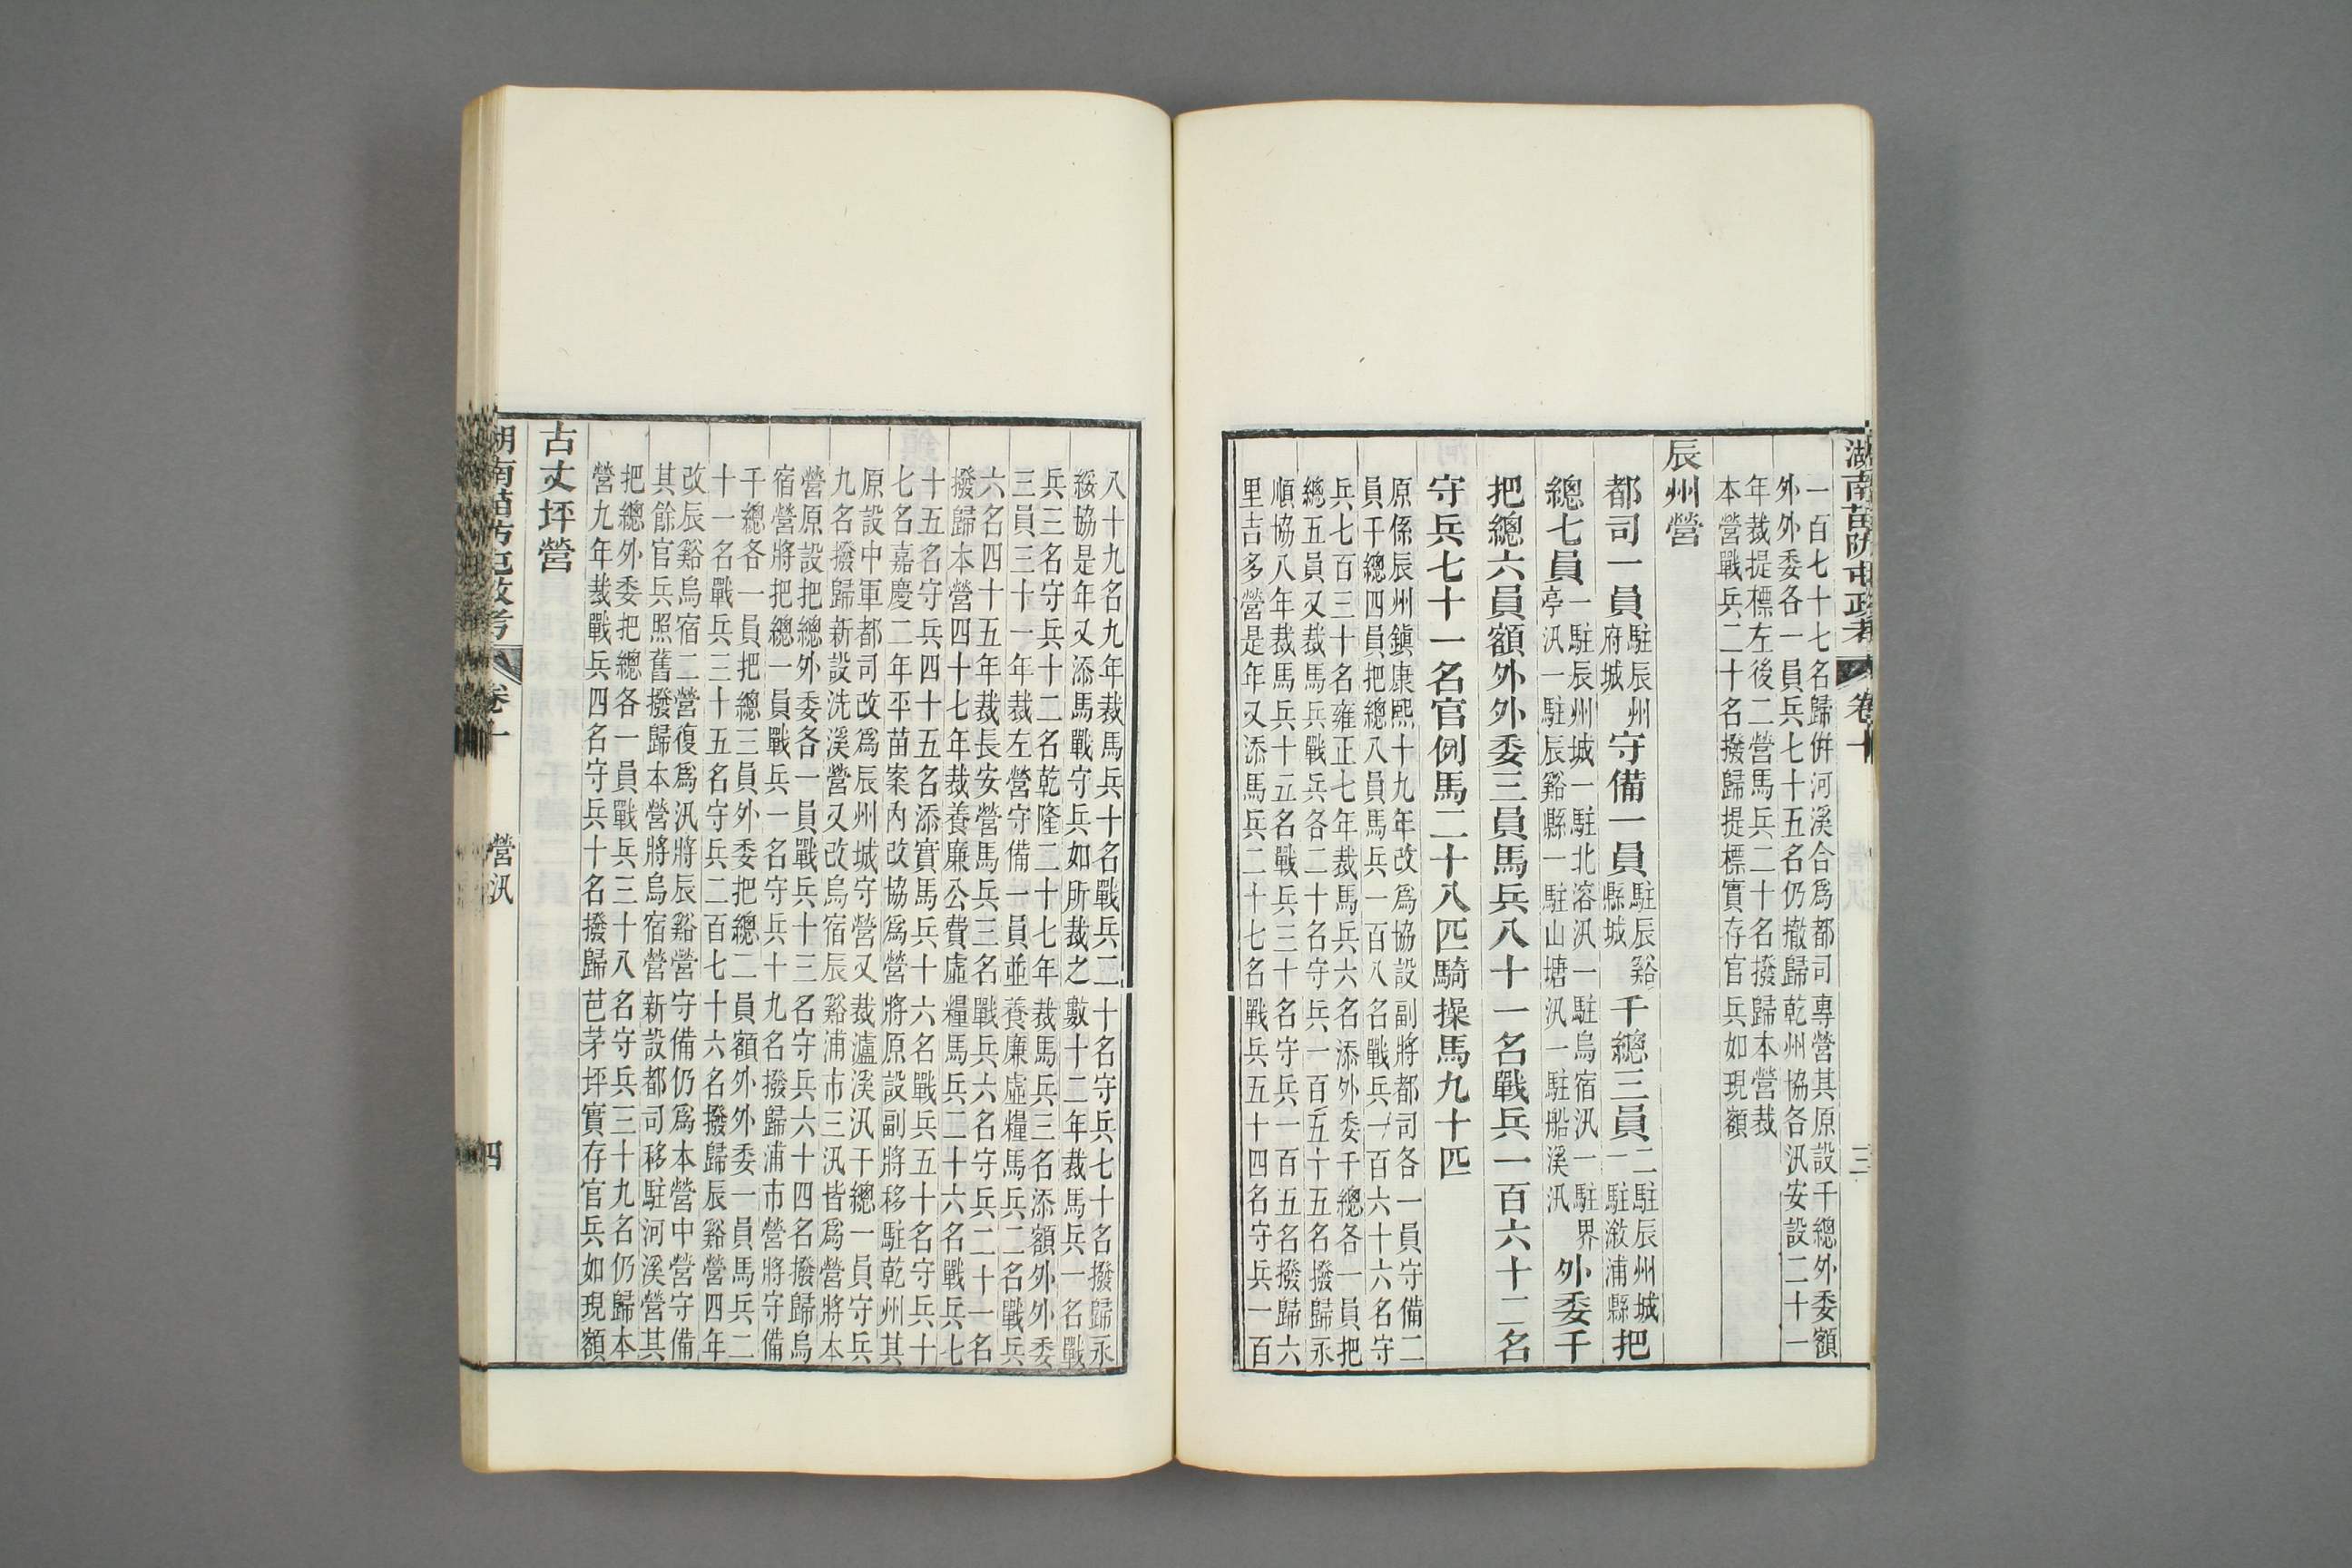 湖南苗防屯政考
卷十
三
一百七十七名歸併河溪合爲都司專營其原設千總外委額
外外委各一員兵七十五名仍撤歸乾州協各汛安設二十一
年裁提標左後二營馬兵二十名撥歸本營裁
本營戰兵二十名撥歸提標實存官兵如現額
辰州營
都司一員駐辰州府城守備一員駐辰谿縣城千總三員二駐辰州城一駐漵浦縣把
總七員一駐辰州城一駐北溶汛一駐烏宿汛一駐界亭汛一駐辰谿縣一駐山塘汛一駐船溪汛外委千
把總六員額外外委三員馬兵八十一名戰兵一百六十二名
守兵七十一名官例馬二十八匹騎操馬九十匹
原係辰州鎮康熙十九年改爲協設副將都司各一員守備二
員千總四員把總八員馬兵一百八名戰兵一百六十六名守
兵七百三十名雍正七年裁馬兵六名添外委千總各一員把
總五員又裁馬兵戰兵各二十名守兵一百五十五名撥歸永
順協八年裁馬兵十五名戰兵三十名守兵一百五名撥歸六
里吉多營是年又添馬兵二十七名戰兵五十四名守兵一百
八十九名九年裁馬兵十名戰兵二十名守兵七十名撥歸永
綏協是年又添馬戰守兵如所裁之數十二年裁馬兵一名戰
兵三名守兵十二名乾隆二十七年裁馬兵三名添額外外委
三員三十一年裁左營守備一員並養廉虛糧馬兵二名戰兵
六名四十五年裁長安營馬兵三名戰兵六名守兵二十一名
撥歸本營四十七年裁養廉公費虛糧馬兵二十六名戰兵七
十五名守兵四十五名添實馬兵十六名戰兵五十名守兵十
七名嘉慶二年平苗案內改協爲營將原設副將移駐乾州其
原設中軍都司改爲辰州城守營又裁瀘溪汛千總一員守兵
九名撥歸新設洗溪營又改烏宿辰谿浦市三汛皆爲營將本
營原設把總外委各一員戰兵十三名守兵六十四名撥歸烏
宿營將把總一員戰兵一名守兵十九名撥歸浦市營將守備
千總各一員把總三員外委把總二員額外外委一員馬兵二
十一名戰兵三十五名守兵二百七十六名撥歸辰谿營四年
改辰谿烏宿二營復爲汛將辰谿營守備仍爲本營中營守備
其餘官兵照舊撥歸本營將烏宿營新設都司移駐河溪營其
把總外委把總各一員戰兵三十八名守兵三十九名仍歸本
營九年裁戰兵四名守兵十名撥歸芭茅坪實存官兵如現額
古丈坪營
營汛
四